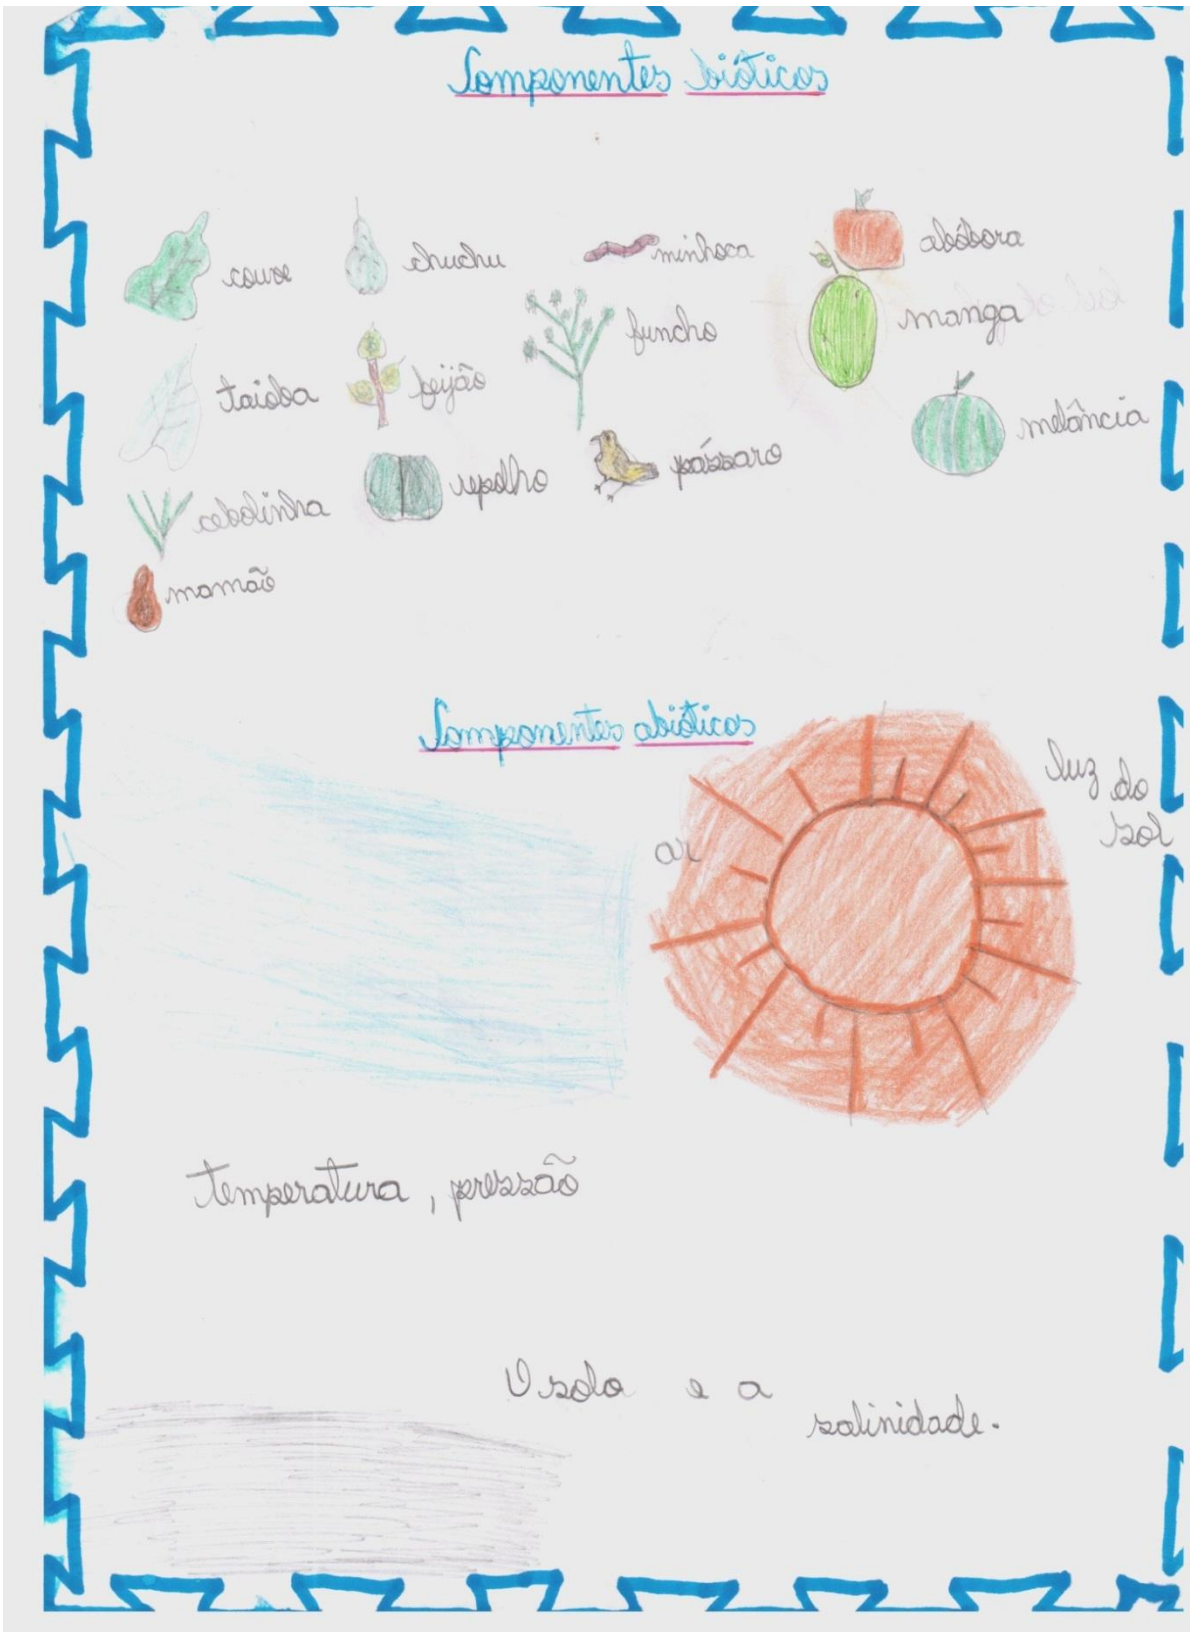 Componentes bióticos
couve
chuchu
minhoca
abóbora
taioba
feijão
funcho
manga
cebolinha
repolho
pássaro
melância
mamão
Componentes abióticos
ar
luz do
sol
temperatura, pressão
O solo e a
salinidade.